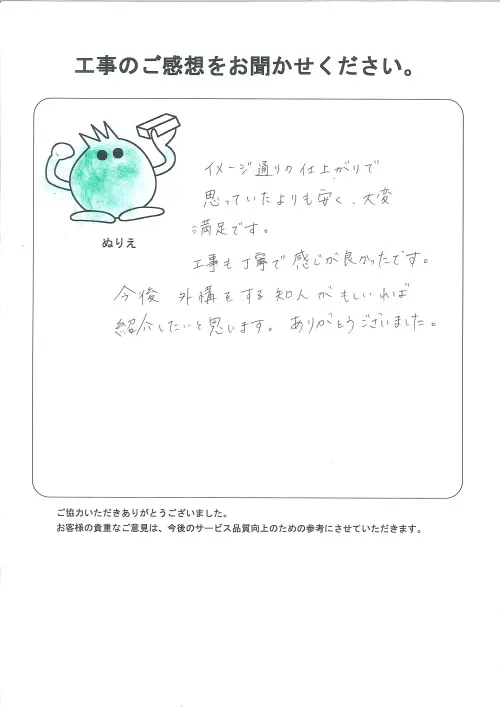 工事のご感想をお聞かせください。
ぬりえ
イメージ通りの仕上がりで
思っていたよりも安く、大変
満足です。
工事も丁寧で感じが良かったです。
今後 外構をする知人がもしいれば
紹介したいと思います。ありがとうございました。
ご協力いただきありがとうございました。
お客様の貴重なご意見は、今後のサービス品質向上のための参考にさせていただきます。